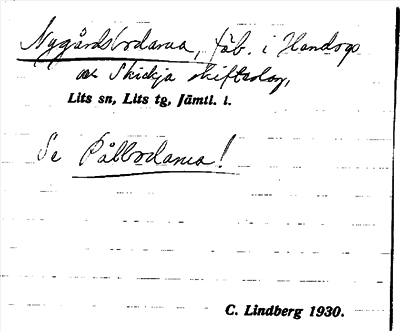 Nygårdsbodarna, fäb. i Handogs
och Skickja skifteslag,
Lits sn, Lits tg, Jämtl. l.
Se Pålbodarna!
C. Lindberg 1930.